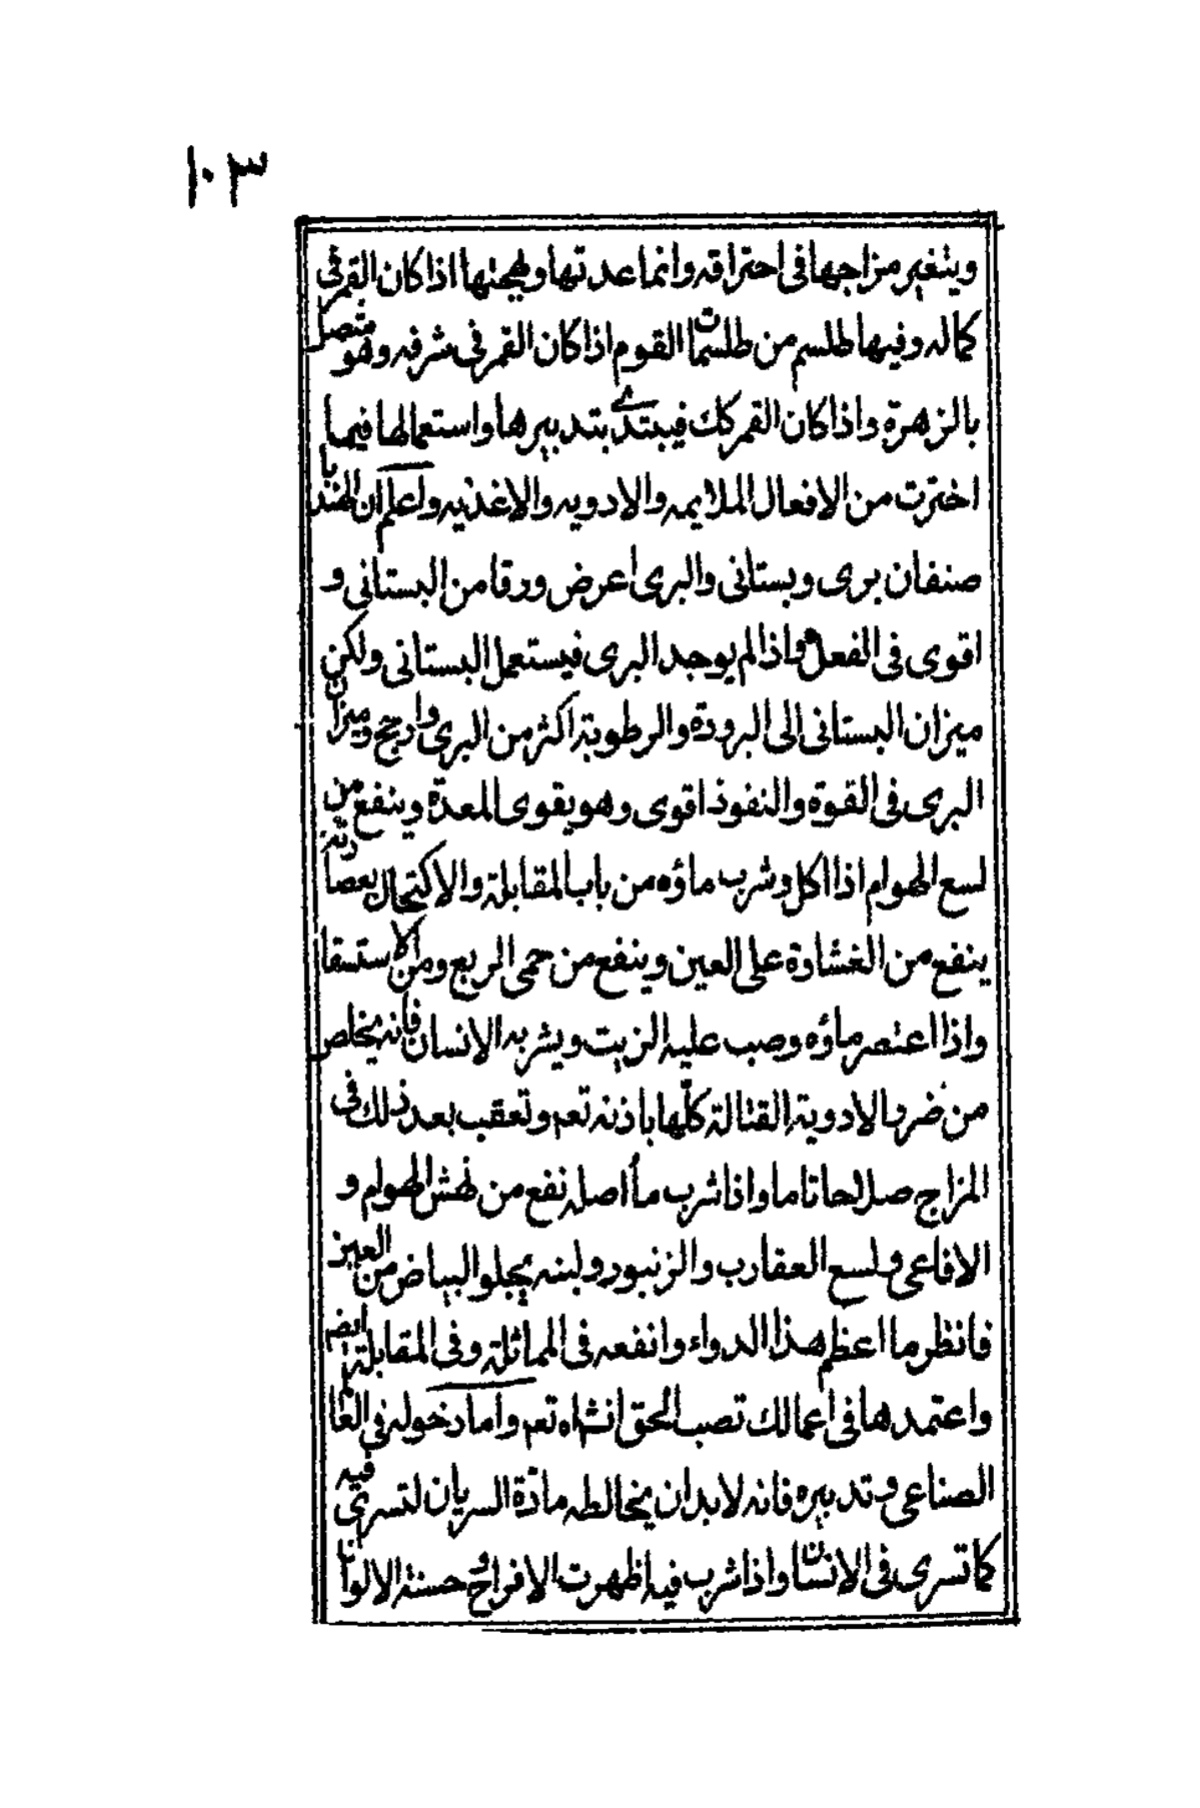 ١٠٣
ويتغير مزاجها فى احتراقه وانما عدتها وبهجتها اذا كان القمر فى
كماله وفيها طلسم من طلسمات القوم اذا كان القمر فى شرفه وهو متصل
بالزهرة واذا كان القمر كك فيبتدئ بتدبيرها واستعمالها فيما
اخترت من الافعال الملائمه والادويه والاغذيه واعلم ان الهندبا
صنفان برى وبستانى والبرى اعرض ورقا من البستانى و
اقوى فى الفعل واذا لم يوجد البرى فيستعمل البستانى ولكن
ميزان البستانى الى البرودة والرطوبة اكثر من البرى وارجح وميزان
البرى فى القوة والنفوذ اقوى وهو يقوى المعدة وينفع من
لسع الهوام اذا اكل وشرب ماؤه من باب المقابلة والاكتحال بعصارته
ينفع من الغشاوة على العين وينفع من حمى الربع ومن الاستسقا
واذا اعتصر ماؤه وصب عليه الزيت ويشربه الانسان فانه يخلص
من ضرر الادوية القتالة كلّها باذنه تعم وتعقب بعد ذلك فى
المزاج صلاحا تاما واذا شرب مأ اصله نفع من نهش الهوام و
الافاعى ولسع العقارب والزنبور ولبنه يجلو البياض من العين
فانظر ما اعظم هذا الدواء وانفعه فى المماثلة وفى المقابلة ايضم
واعتمدها فى اعمالك تصب الحق انشاه تعم واما دخوله فى العالم
الصناعى وتدبيره فانه لا بد ان يخالطه مادّة السريان لتسرى فيه
كما تسرى فى الانسان واذا شرب فيه اظهرت الافراح وحسنة الالوان